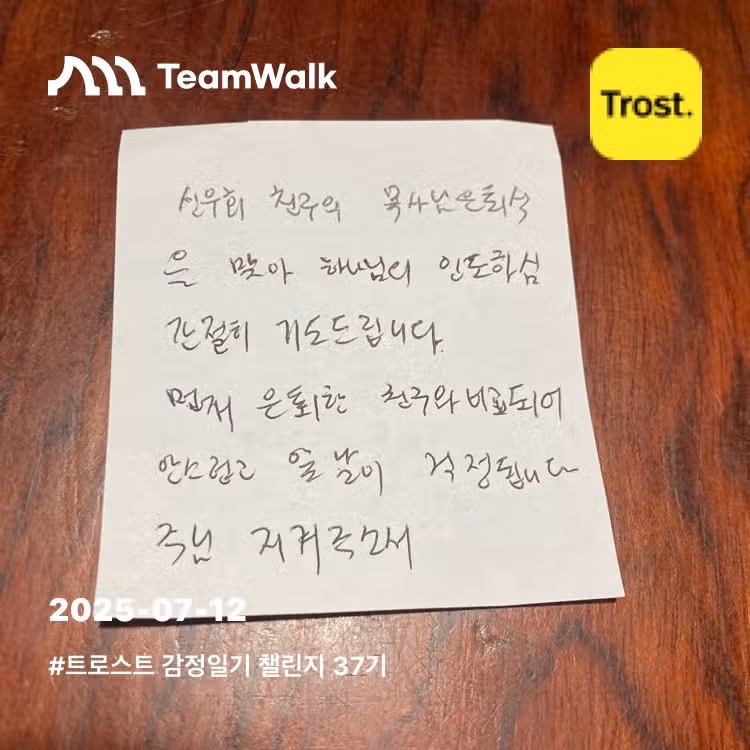 TeamWalk
Trost.
신우회 친구의 목사님은퇴식
을 맞아 하나님의 인도하심
간절히 기도드립니다.
먼저 은퇴한 친구와 비교되어
안스럽고 앞날이 걱정됩니다
주님 지켜주소서
2025-07-12
#트로스트 감정일기 챌린지 37기